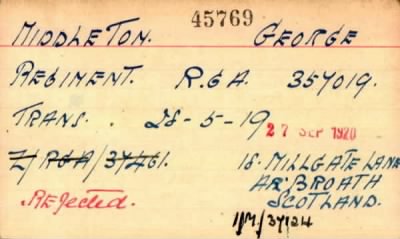 45769
MIDDLETON. GEORGE
REGIMENT. R.G.A. 357019.
TRANS. 28-5-19 27 SEP 1920
Z/RGA/37461. 18. MILLGATE LANE
ARBROATH
Rejected. SCOTLAND.
1/M/37124